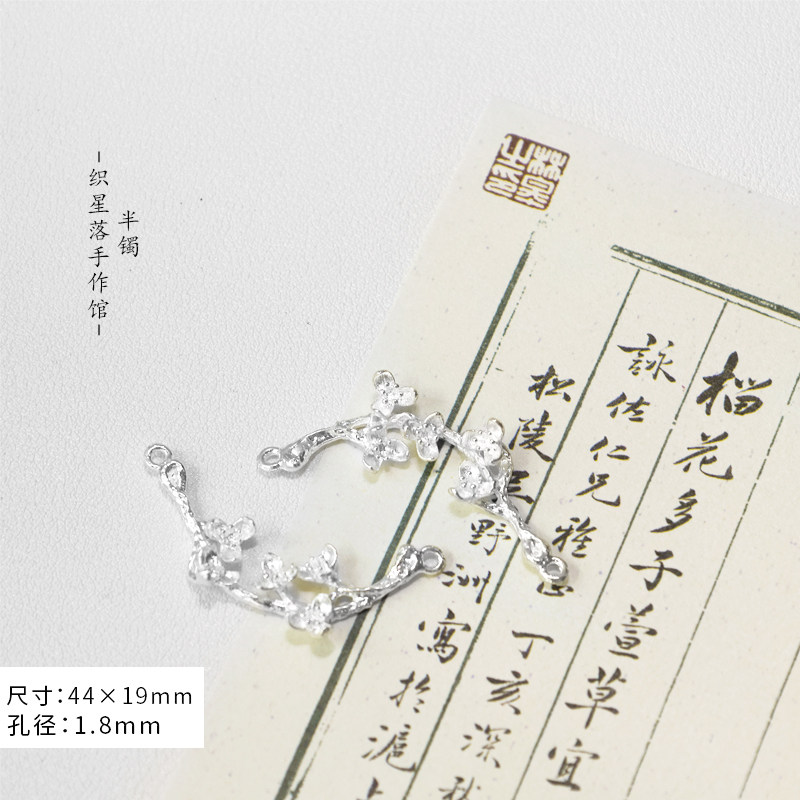 半镯
织星落手作馆
榴花多子萱草宜
詠佐仁兄雅
丁亥深秋
松陵
野洲寫於滬上
尺寸：44×19mm
孔径：1.8mm